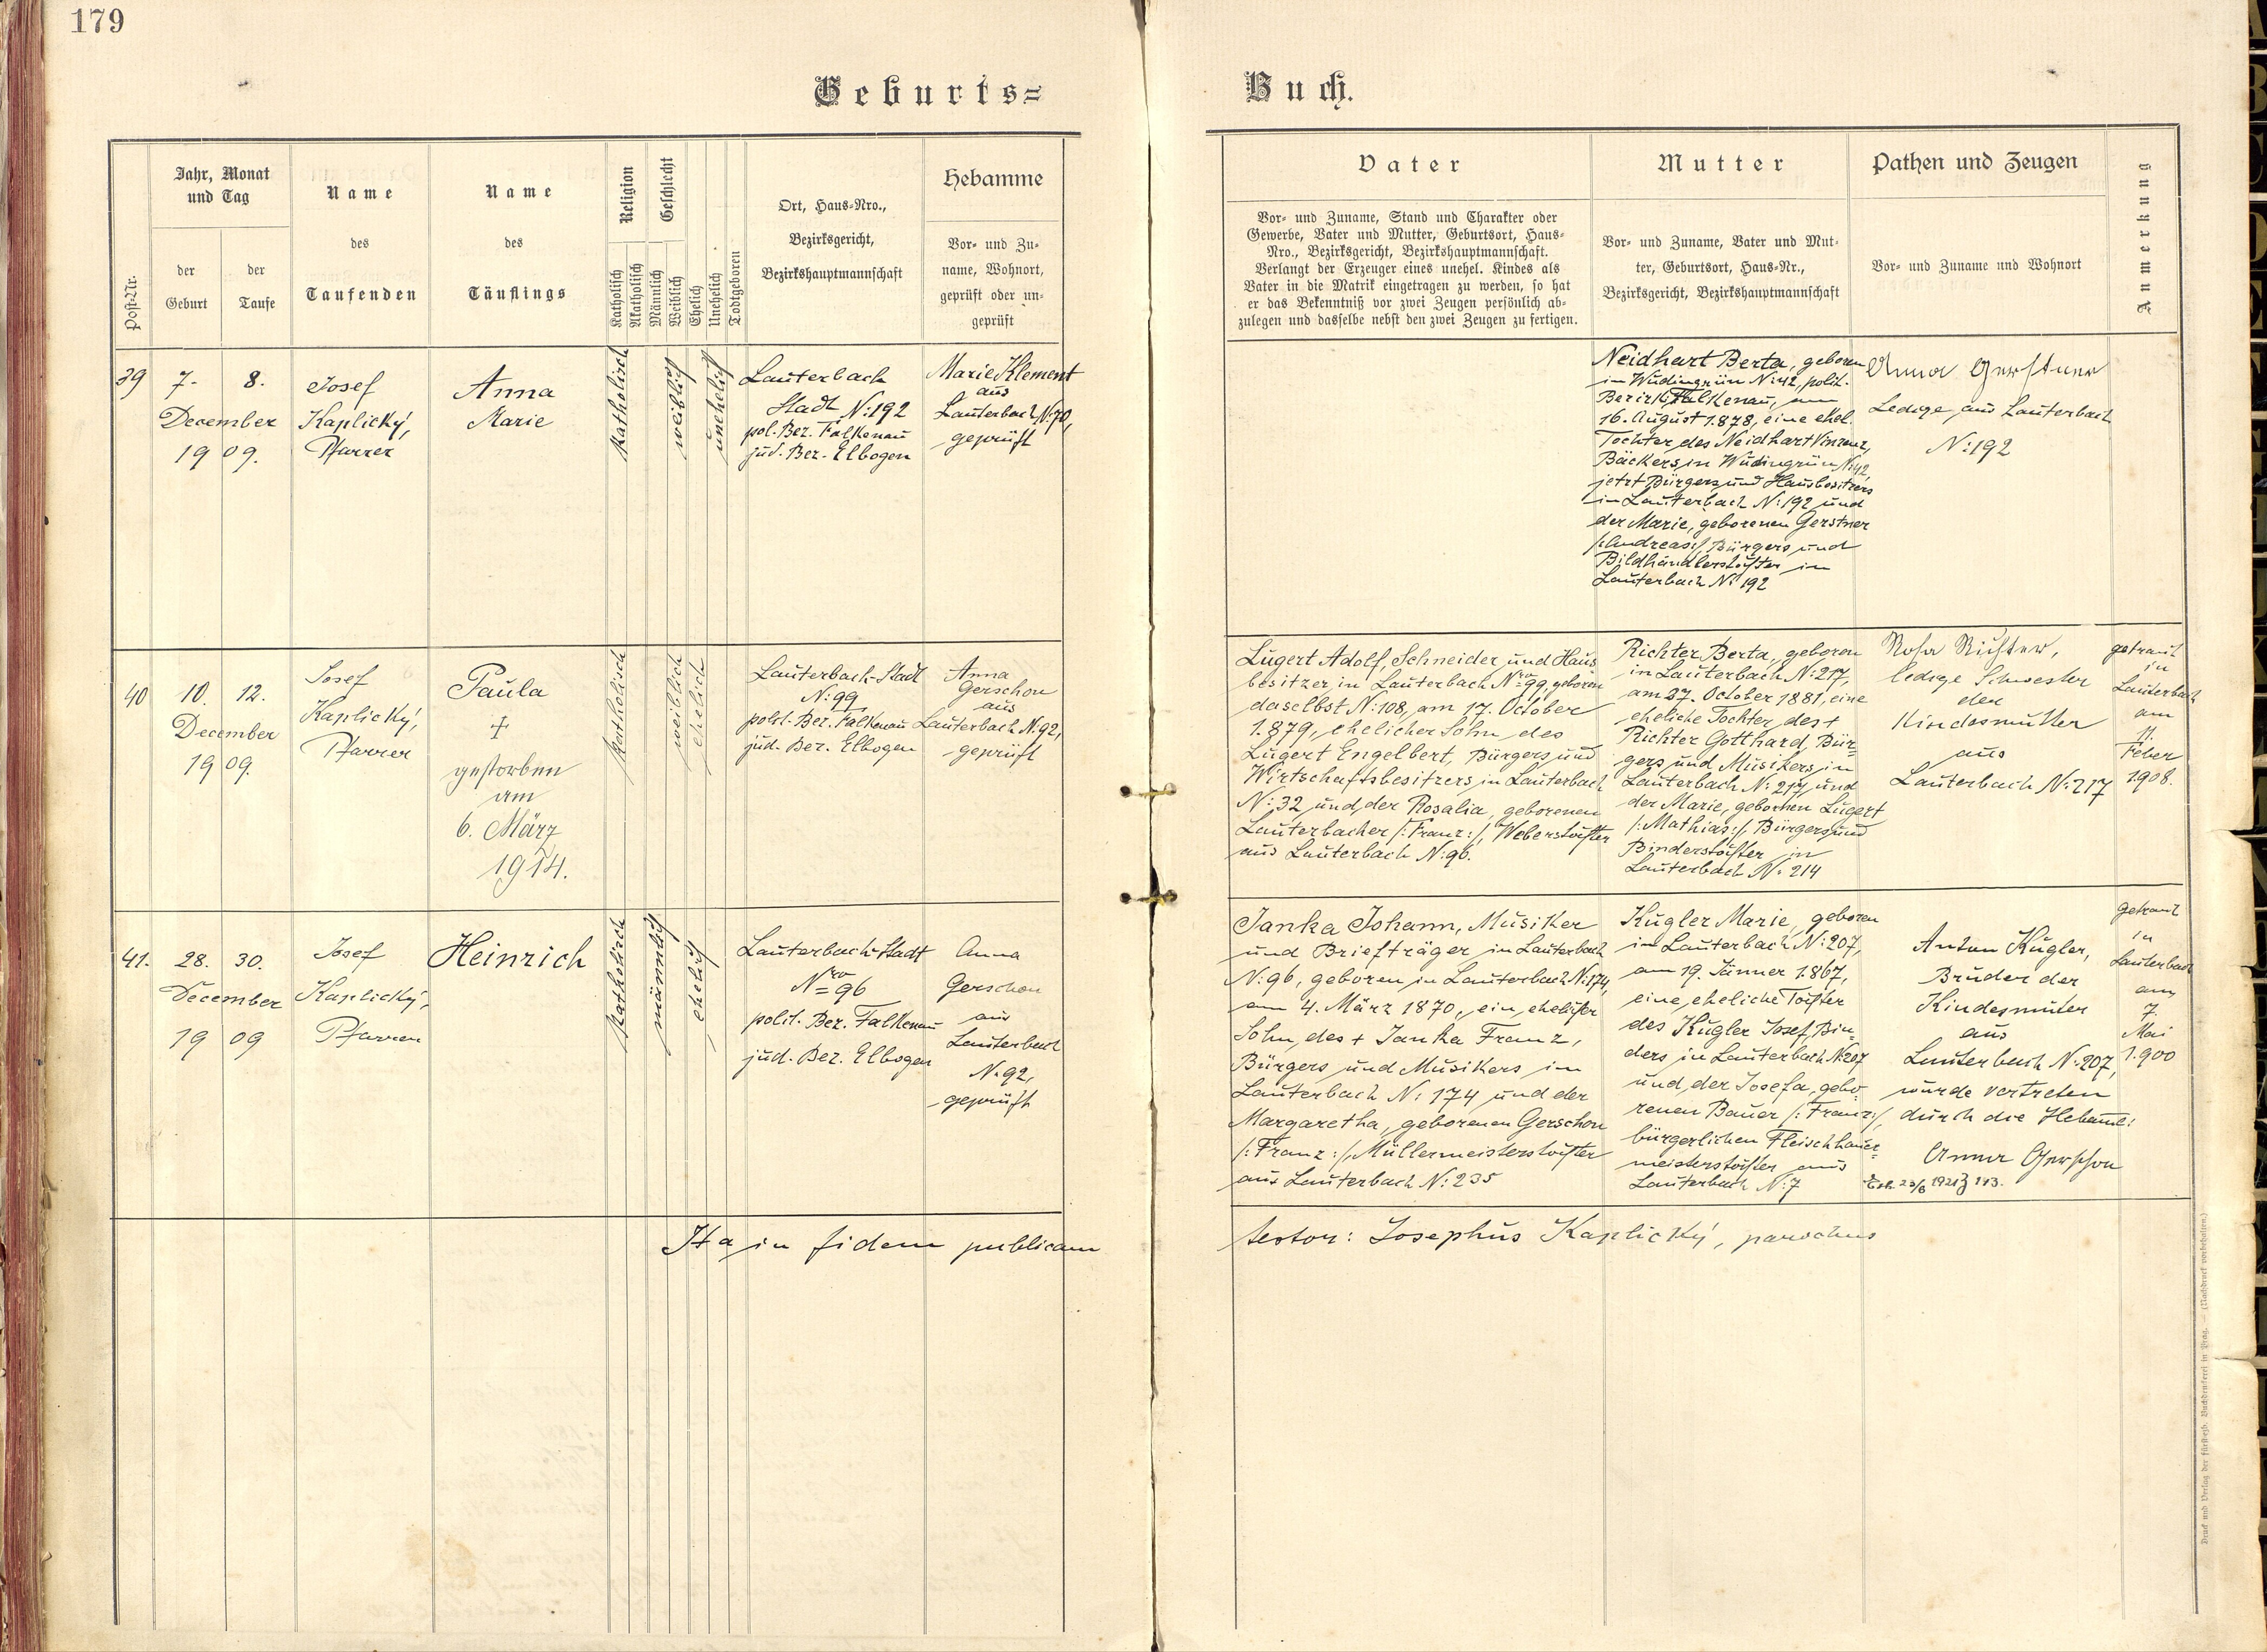 179
Geburts=
Buch.
Post-Nr.
Jahr, Monat
und Tag
der
Geburt
der
Taufe
Name
des
Taufenden
Name
des
Täuflings
Religion
Katholisch
Akatholisch
Geschlecht
Männlich
Weiblich
Ehelich
Unehelich
Todtgeboren
Ort, Haus-Nro.,
Bezirksgericht,
Bezirkshauptmannschaft
Hebamme
Vor- und Zu-
name, Wohnort,
geprüft oder un-
geprüft
Vater
Vor- und Zuname, Stand und Charakter oder
Gewerbe, Vater und Mutter, Geburtsort, Haus-
Nro., Bezirksgericht, Bezirkshauptmannschaft.
Verlangt der Erzeuger eines unehel. Kindes als
Vater in die Matrik eingetragen zu werden, so hat
er das Bekenntniß vor zwei Zeugen persönlich ab-
zulegen und dasselbe nebst den zwei Zeugen zu fertigen.
Mutter
Vor- und Zuname, Vater und Mut-
ter, Geburtsort, Haus-Nr.,
Bezirksgericht, Bezirkshauptmannschaft
Pathen und Zeugen
Vor- und Zuname und Wohnort
Anmerkung
39
7. 8.
December
1909.
Josef
Kaplický,
Pfarrer
Anna
Marie
Katholisch
weiblich
unehelich
Lauterbach
Stadt N:192
pol. Bez. Falkenau
jud. Bez. Elbogen
Marie Klement
aus
Lauterbach N:70,
geprüft
Neidhart Berta, geboren
in Wudingrün N:42, polit.
Bezirk Falkenau, am
16. August 1878, eine ehel.
Tochter des Neidhart Vinzenz,
Bäckers in Wudingrün N:42,
jetzt Bürgers und Hausbesitzers
in Lauterbach N:192 und
der Marie, geborenen Gerstner
/:Andreas:/, Bürgers und
Bildhändlerstochter in
Lauterbach N: 192
Anna Gerstner
Ledige aus Lauterbach
N:192
40
10. 12.
December
1909.
Josef
Kaplický,
Pfarrer
Paula
+
gestorben
am
6. März
1914.
Katholisch
weiblich
ehelich
Lauterbach-Stadt
N:99
polit. Bez. Falkenau
jud. Bez. Elbogen
Anna
Gerschon
aus
Lauterbach N:92,
geprüft
Lugert Adolf, Schneider und Haus
besitzer in Lauterbach Nro 99, geboren
daselbst N:108, am 17. October
1.879, ehelicher Sohn des
Lugert Engelbert, Bürgers und
Wirtschaftsbesitzers in Lauterbach
N:32 und der Rosalia, geborenen
Lauterbacher /:Franz:/, Weberstochter
aus Lauterbach N:96.
Richter Berta, geboren
in Lauterbach N:217,
am 27. October 1881, eine
eheliche Tochter des +
Richter Gotthard, Bür-
gers und Musikers in
Lauterbach N: 217 und
der Marie, gebornen Lugert
/:Mathias:/, Bürgers und
Binderstochter in
Lauterbach N: 214
Rosa Richter,
ledige Schwester
der
Kindesmutter
aus
Lauterbach N:217
getraut
in
Lauterbach
am
11.
Feber
1908.
41.
28. 30.
December
1909
Josef
Kaplický,
Pfarrer
Heinrich
Katholisch
männlich
ehelich
Lauterbach-Stadt
Nro 96
polit. Bez. Falkenau
jud. Bez. Elbogen
Anna
Gerschon
aus
Lauterbach
N:92,
geprüft
Janka Johann, Musiker
und Briefträger in Lauterbach
N:96, geboren in Lauterbach N:174,
am 4. März 1870, ein ehelicher
Sohn des + Janka Franz,
Bürgers und Musikers in
Lauterbach N: 174 und der
Margaretha, geborenen Gerschon
/:Franz:/, Müllermeisterstochter
aus Lauterbach N:235
Kugler Marie, geboren
in Lauterbach N:207,
am 19. Jänner 1.867,
eine eheliche Tochter
des Kugler Josef, Bin-
ders in Lauterbach N:207
und der Josefa, gebo-
renen Bauer /:Franz:/,
bürgerlichen Fleischhauer-
meisterstochter aus
Lauterbach N:7
Anton Kugler,
Bruder der
Kindesmutter
aus
Lauterbach N:207,
wurde vertreten
durch die Hebamme:
Anna Gerschon
23/8 1921 Z 113.
Getraut
in
Lauterbach
am
7.
Mai
1.900
Ita in fidem publicam
testor: Josephus Kaplický, parochus
Druck und Verlag der fürsterzb. Buchdruckerei in Prag. — (Nachdruck vorbehalten.)